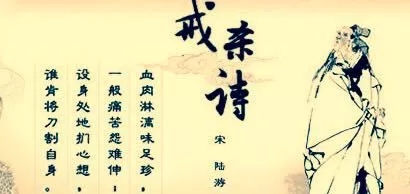 戒杀诗
宋 陆游
血肉淋漓味足珍，
一般痛苦怨难伸；
设身处地扪心想，
谁肯将刀割自身。